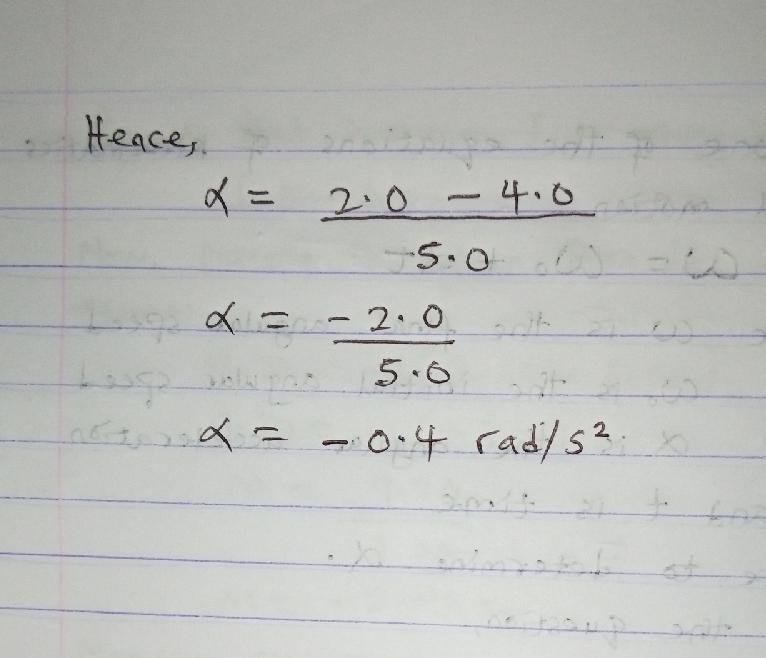 Hence,
α = 2.0 - 4.0
5.0
α = - 2.0
5.0
α = - 0.4 rad/s²